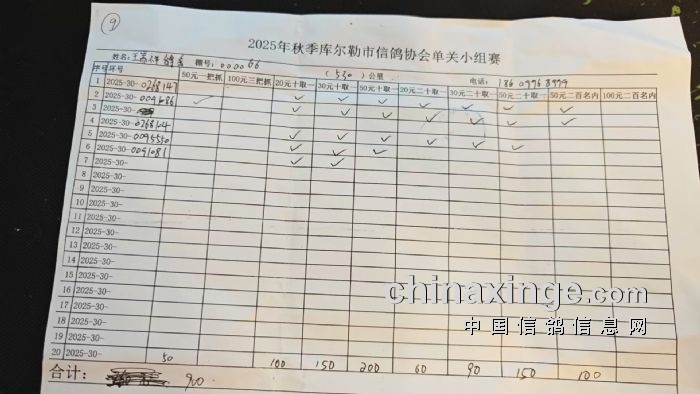 9
2025年秋季库尔勒市信鸽协会单关小组赛
姓名: 棚号: 000066 (530)公里 电话: 18609968999
序号 环号 50元一把抓 100元三把抓 20元十取一 30元十取一 50元十取一 20元二十取一 30元二十取一 50元二十取一 50元二百名内 100元二百名内
1 2025-30-0268147
2 2025-30-0091686 ✓ ✓ ✓ ✓ ✓ ✓ ✓ ✓
3 2025-30- ✓ ✓ ✓ ✓ ✓ ✓ ✓
4 2025-30-0268144
5 2025-30-0095550 ✓ ✓ ✓ ✓ ✓ ✓
6 2025-30-0091081 ✓ ✓ ✓
7 2025-30- ✓ ✓
8 2025-30-
9 2025-30-
10 2025-30-
11 2025-30-
12 2025-30-
13 2025-30-
14 2025-30-
15 2025-30-
16 2025-30-
17 2025-30-
18 2025-30-
19 2025-30-
20 2025-30-
合计: 900 50 100 150 200 60 90 150 100
chinaxinge.com
中国信鸽信息网